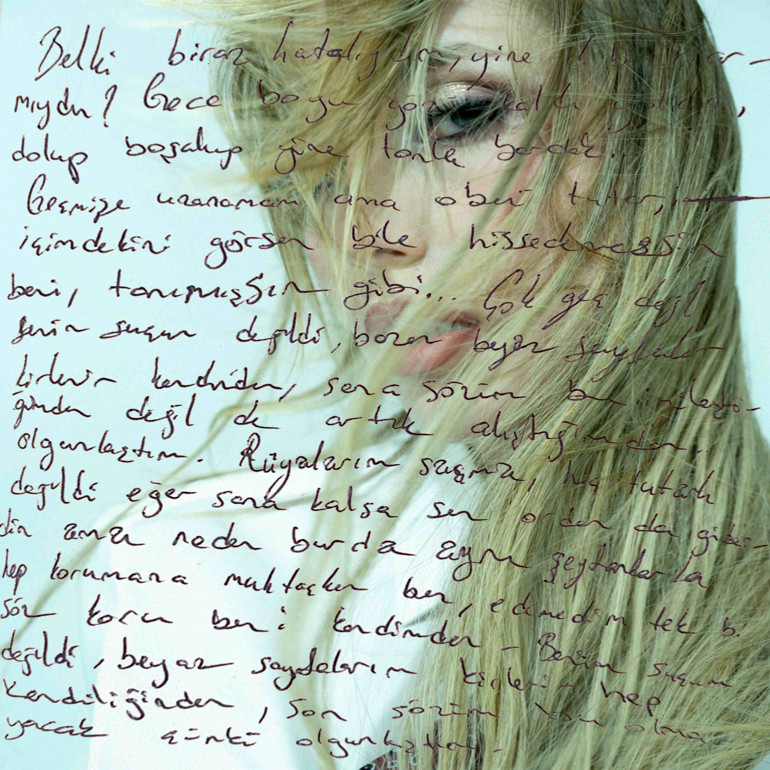 Belki biraz hatalıydım, yine
mıydın? Gece boyu
dolup boşalıp yine bardak.
Geçmişe uzanamam ama
içimdekini görsen bile hissedemezsin
beni, tanımışsın gibi... Çok geç değil
senin suçun değildi, bazen beyaz sayfalar
kirlenir kendinden, sana sözüm bu
ğimden değil de artık alıştığımdan.
olgunlaştım. Rüyalarım saçma, hiç tutarlı
değildi eğer sana kalsa sen ordan da gider-
din ama neden burda aynı şeytanlarla
hep korumana muhtaçken ben, edemedim tek bi
söz koru beni kendimden - Benim suçum
değildi, beyaz sayfalarım kirlenir hep
kendiliğinden, son sözüm bu olma-
yacak çünkü olgunlaştım.